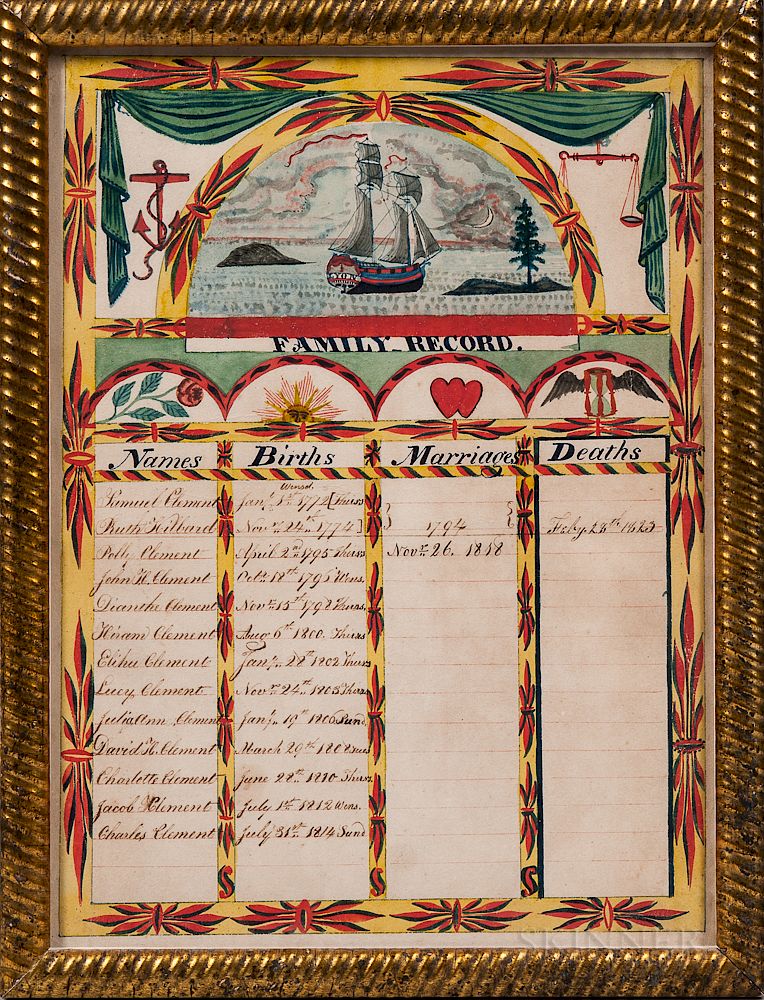 LYON
FAMILY_RECORD.
Names Births Marriages Deaths
Wensd.
Samuel Clement Janr. 1st 1772 [Thurs
Ruth Hibbard Novr. 24th 1774] } 1794 { Feby. 28th
Polly Clement April 2nd 1795 Thurs Novr. 26. 1818
John H. Clement Octr. 18th 1796 Wens.
Dianthe Clement Novr. 15th 1798 Thurs.
Hiram Clement Aug. 6th 1800. Thurs
Elihu Clement Janr. 28th 1802 Thurs
Lucy Clement Novr. 24th 1803 Thurs
Julia Ann Clement Janr. 19th 1806 Sund
David H. Clement March 29th 1808 Tues
Charlotte Clement June 28th 1810 Thurs
Jacob Clement July 1st 1812 Wens.
Charles Clement July 31st 1814 Sund
SKINNER